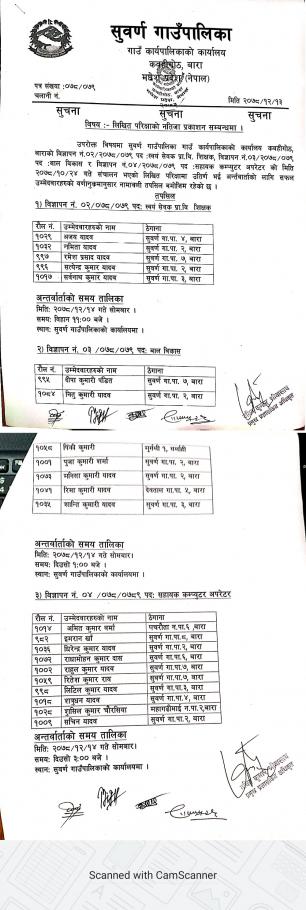 सुवर्ण गाउँपालिका
गाउँ कार्यपालिकाको कार्यालय
कवहीगोठ, बारा
मधेश प्रदेश (नेपाल)
पत्र संख्या :०७८/०७९
चलानी नं.
मिति २०७८/१२/१३
सूचना सूचना सूचना
विषय :- लिखित परिक्षाको नतिजा प्रकाशन सम्बन्धमा ।
उपरोक्त विषयमा सुवर्ण गाउँपालिका गाउँ कार्यपालिकाको कार्यालय कवहीगोठ,
बाराको विज्ञापन नं.०२/०७८/०७९ पद :स्वयं सेवक प्रा.वि. शिक्षक, विज्ञापन नं.०३/०७८/०७९
पद :बाल विकास र विज्ञापन नं.०४/०७८/०७९ पद :सहायक कम्प्युटर अपरेटर को मिति
२०७८/१०/२४ गते संचालन भएको लिखित परिक्षामा उतिर्ण भई अन्तर्वार्ताको लागि सफल
उम्मेदवारहरुको वर्णानुक्रमानुसार नामावली तपसिल बमोजिम रहेको छ ।
तपसिल
१) विज्ञापन नं. ०२/०७८/०७९ पद: स्वयं सेवक प्रा.वि शिक्षक
रौल नं. उम्मेदवारहरुको नाम ठेगाना
१०२९ अजय यादव सुवर्ण गा.पा. ४, बारा
१०३२ नमिता यादव सुवर्ण गा.पा. २, बारा
९९७ रमेश प्रसाद यादव सुवर्ण गा.पा. ७, बारा
९९६ सत्येन्द्र कुमार यादव सुवर्ण गा.पा. २, बारा
१०१७ सर्वनाथ कुमार यादव सुवर्ण गा.पा. ३, बारा
अन्तर्वार्ताको समय तालिका
मिति: २०७८/१२/१४ गते सोमबार।
समय: विहान ११:०० बजे ।
स्थान: सुवर्ण गाउँपालिकाको कार्यालयमा ।
२) विज्ञापन नं. ०३ /०७८/०७९ पद: बाल विकास
रौल नं. उम्मेदवारहरुको नाम ठेगाना
९९५ दीपा कुमारी पंडित सुवर्ण गा.पा. ७, बारा
१०८४ नितु कुमारी यादव सुवर्ण गा.पा. २, बारा
१०५८ पिंकी कुमारी
१००१ पुजा कुमारी शर्मा सुवर्ण गा.पा. २, बारा
१०७३ ममिता कुमारी यादव सुवर्ण गा.पा. २, बारा
१०४१ रिमा कुमारी यादव देवताल गा.पा. ५, बारा
१०३५ शान्ति कुमारी यादव सुवर्ण गा.पा. ३, बारा
अन्तर्वार्ताको समय तालिका
मिति: २०७८/१२/१४ गते सोमबार।
समय: दिउसो १:०० बजे ।
स्थान: सुवर्ण गाउँपालिकाको कार्यालयमा ।
३) विज्ञापन नं. ०४ /०७८/०७८९ पद: सहायक कम्प्युटर अपरेटर
रौल नं. उम्मेदवारहरुको नाम ठेगाना
१०१४ अमित कुमार वर्मा पचरौता न.पा.६ ,बारा
९८२ इमरान खाँ सुवर्ण गा.पा.८, बारा
१०३६ धिरेन्द्र कुमार यादव सुवर्ण गा.पा.२, बारा
१०७२ राधामोहन कुमार दास सुवर्ण गा.पा.६, बारा
१००२ राहुल कुमार यादव सुवर्ण गा.पा.७, बारा
१०५९ रितेश कुमार राय सुवर्ण गा.पा.७, बारा
९९८ लिटिल कुमार यादव सुवर्ण गा.पा.३, बारा
१०१८ शत्रुधन यादव सुवर्ण गा.पा.४, बारा
१०२८ सुशिल कुमार चौरसिया महागढीमाई न.पा.२,बारा
१००९ सचिन यादव सुवर्ण गा.पा.२, बारा
अन्तर्वार्ताको समय तालिका
मिति: २०७८/१२/१४ गते सोमबार।
समय: दिउसो ३:०० बजे ।
स्थान: सुवर्ण गाउँपालिकाको कार्यालयमा ।
Scanned with CamScanner